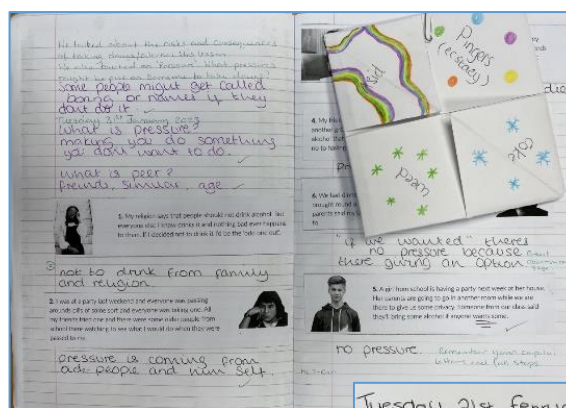 We talked about the risks and consequences
of taking drugs/alcohol this lesson.
We also looked at "Pressure". What pressures
might be put on someone to take drugs?
Some people might get called
boring or names if they
dont do it.
Tuesday 31st January 2023
What is pressure?
making you do something
you dont want to do.
What is peer?
friends, similar age
1. My religion says that people should not drink alcohol, but
everyone else I know drinks it and nothing bad ever happens
to them. If I decided not to drink it I'd be the 'odd one out'.
not to drink from family
and religion.
2. I was at a party last weekend and everyone was passing
around pills of some sort and everyone was taking one. All
my friends tried one and there were some older people from
school there watching to see what I would do when they were
passed to me.
pressure is coming from
people and him self.
acid
Pingers
(ecstacy)
weed
coke
4. My
another
alcohol
no to
6. We had
brought round
parents said
to
"if we wanted" theres
no pressure because
there giving an option
5. A girl from school is having a party next week at her house.
Her parents are going to go in another room while we are
there to give us some privacy. Someone from our class said
they'll bring some alcohol if anyone wants some.
no pressure.
Remember your capital
letters and full stops.
Tuesday 21st